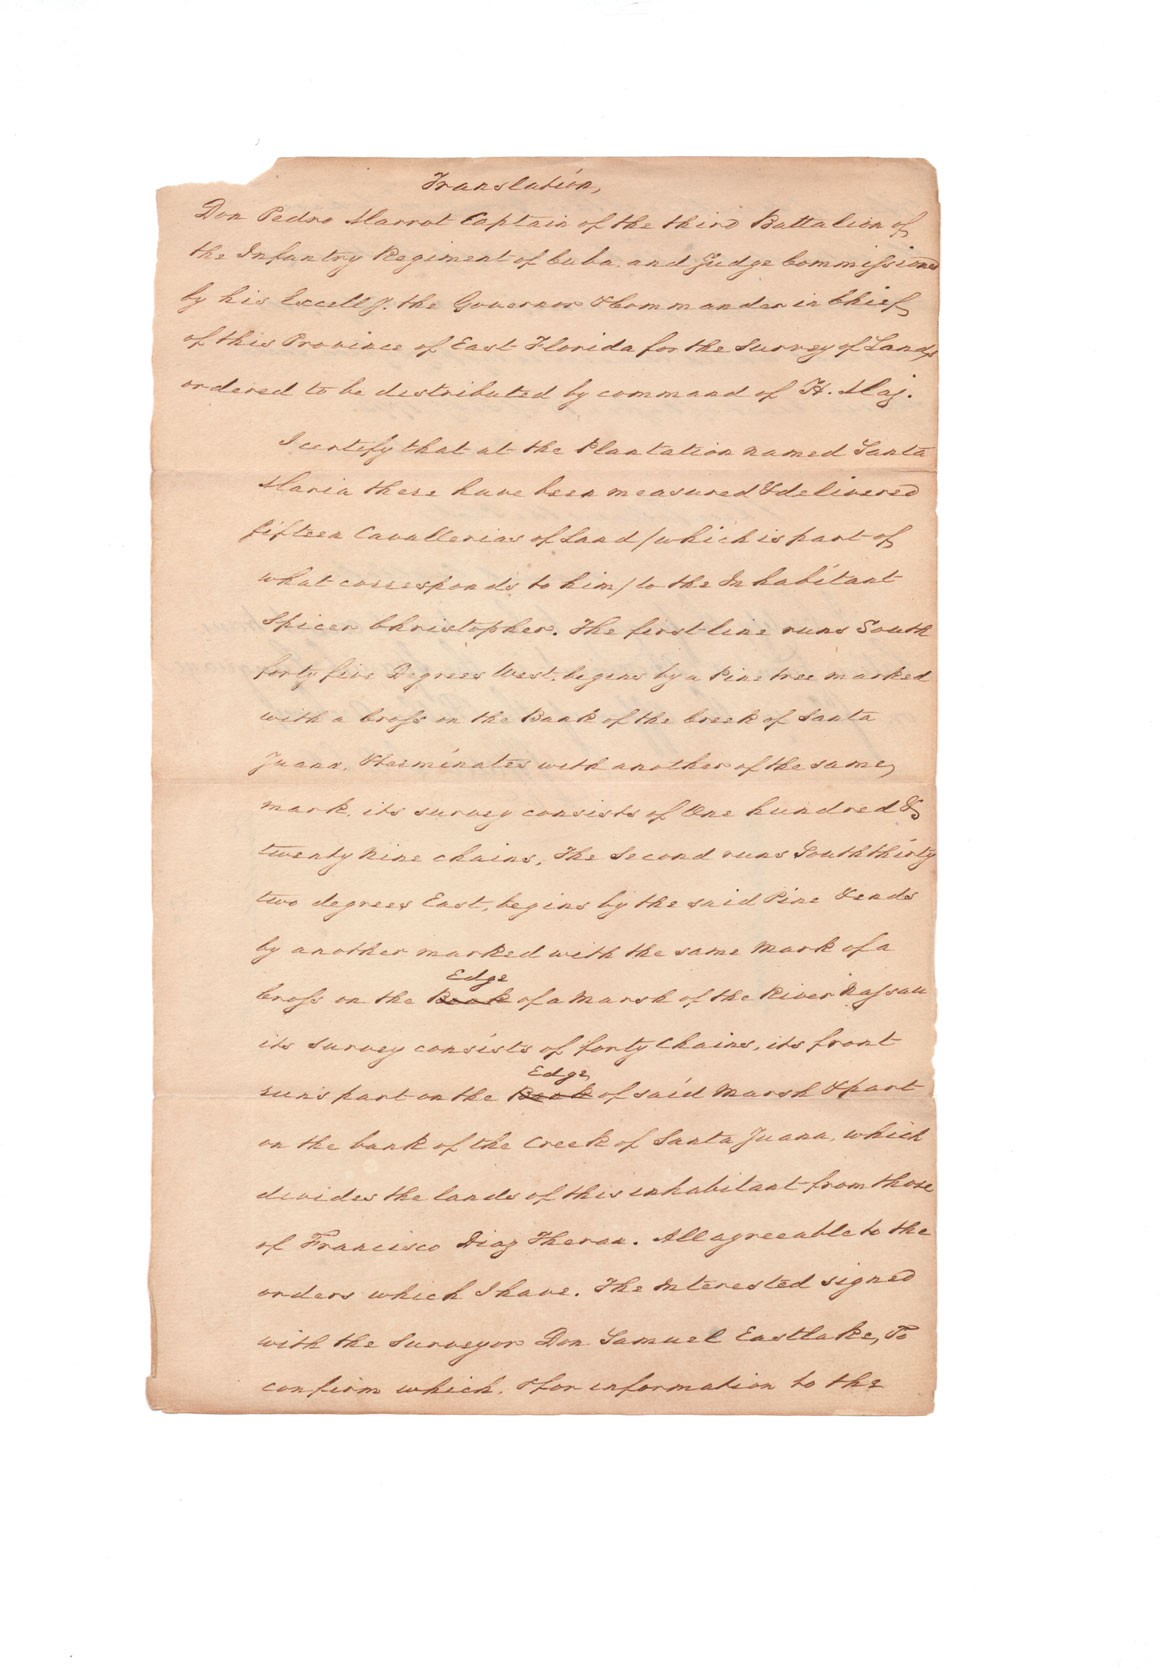 Translation,
Don Pedro Marrot Captain of the third Battalion of
the Infantry Regiment of Cuba and Judge Commissioned
by his Excell.y. the Governor & Commander in Chief
of this Province of East Florida for the Survey of Lands
ordered to be distributed by command of H. Maj.
I certify that at the Plantation named Santa
Maria there have been measured & delivered
fifteen Cavallerias of Land /which is part of
what corresponds to him/ to the Inhabitant
Spicer Christopher. The first line runs South
forty five Degrees West, begins by a Pine tree marked
with a Cross on the Bank of the Creek of Santa
Juana, & terminates with another of the same,
mark, its survey consists of One hundred &
twenty Nine chains. The Second runs South thirty
two degrees East, begins by the said Pine & ends
by another marked with the same Mark of a
Edge
Cross on the Bank of a Marsh of the River Nassau
its survey consists of forty Chains, its front
Edge
runs part on the Bank of said Marsh & part
on the bank of the Creek of Santa Juana, which
divides the lands of this inhabitant from those
of Francisco Diaz Theran. All agreeable to the
orders which I have. The Interested signed
with the Surveyor Don Samuel Eastlake, To
confirm which, & for information to the